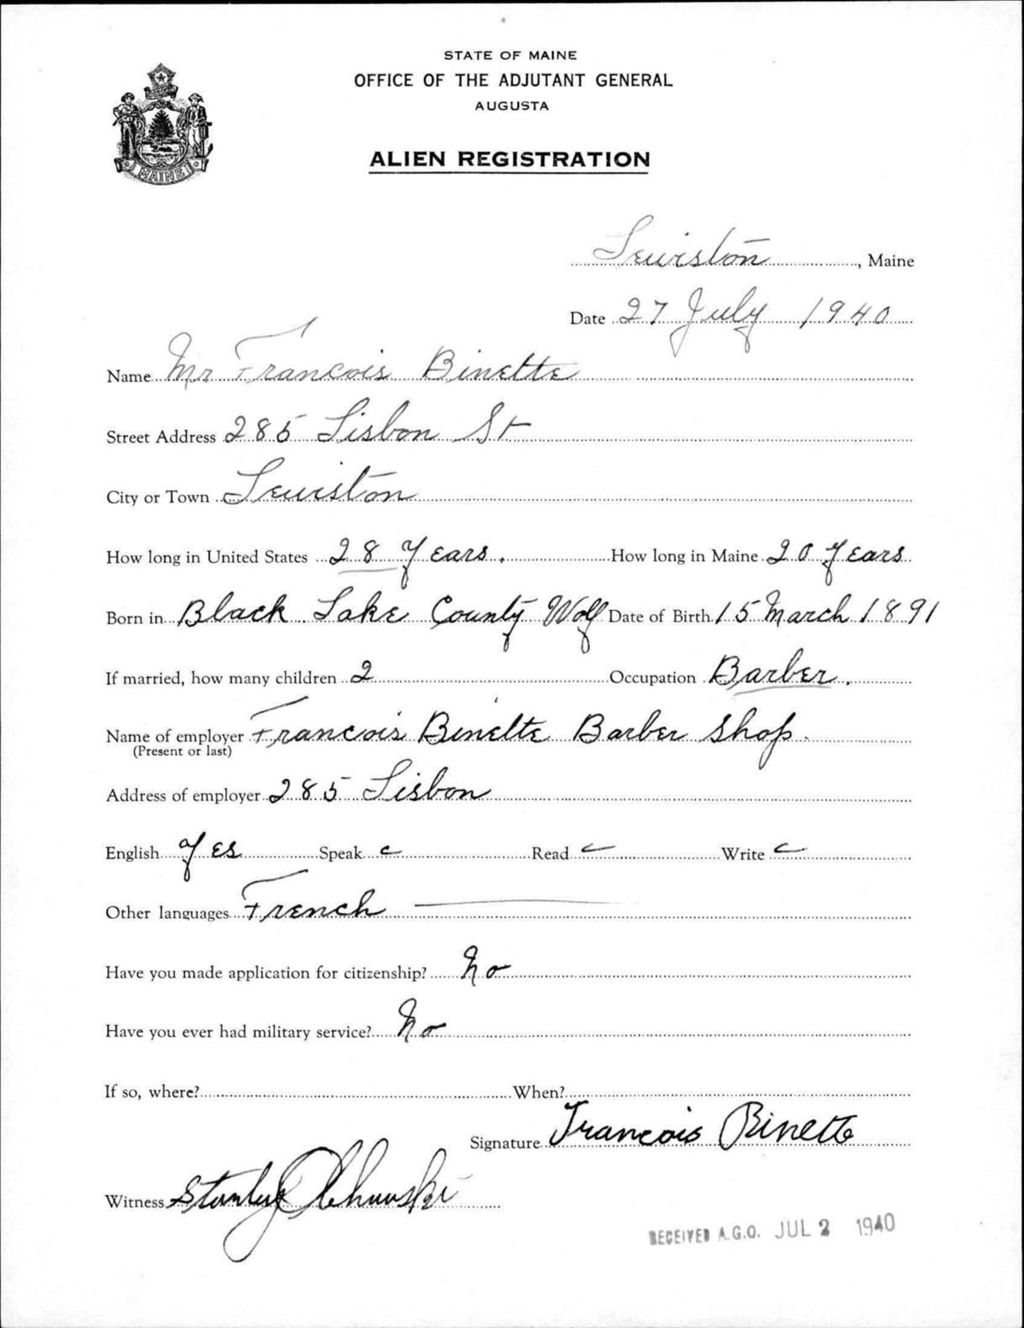 STATE OF MAINE
OFFICE OF THE ADJUTANT GENERAL
AUGUSTA
MAINE
ALIEN REGISTRATION
Lewiston, Maine
Date 27 July 1940
Name Mr Francois Binette
Street Address 285 Lisbon St
City or Town Lewiston
How long in United States 28 Years. How long in Maine 20 Years
Born in Black Lake County Wolf Date of Birth 15 March 1891
If married, how many children 2 Occupation Barber.
Name of employer Francois Binette Barber Shop.
(Present or last)
Address of employer 285 Lisbon
English Yes Speak c Read c Write c
Other languages French
Have you made application for citizenship? No
Have you ever had military service? No
If so, where? When?
Signature Francois Binette
Witness Stanley
RECEIVED A.G.O. JUL 2 1940